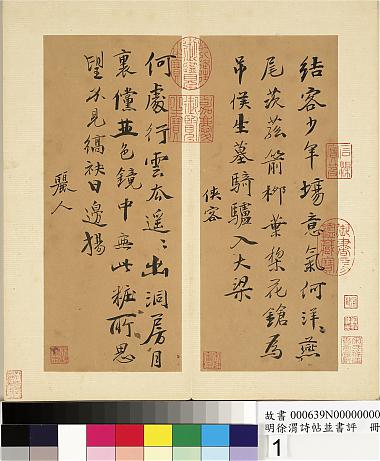 結客少年場意氣何洋〻燕
尾茨菰箭柳葉梨花鎗為
吊侯生墓騎驢入大梁
俠客
何處行雲遥〻出洞房月
裏儻並色鏡中無此粧所思
望不見縞袂日邊揚
麗人
嘉慶御覽之寶
故書 000639N00000000
明徐渭詩帖並書評 冊
1